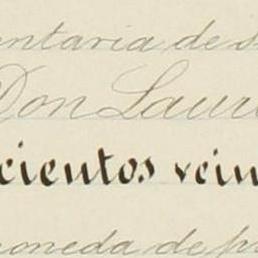 entaria de s
Don Laur
cientos vein
moneda de p